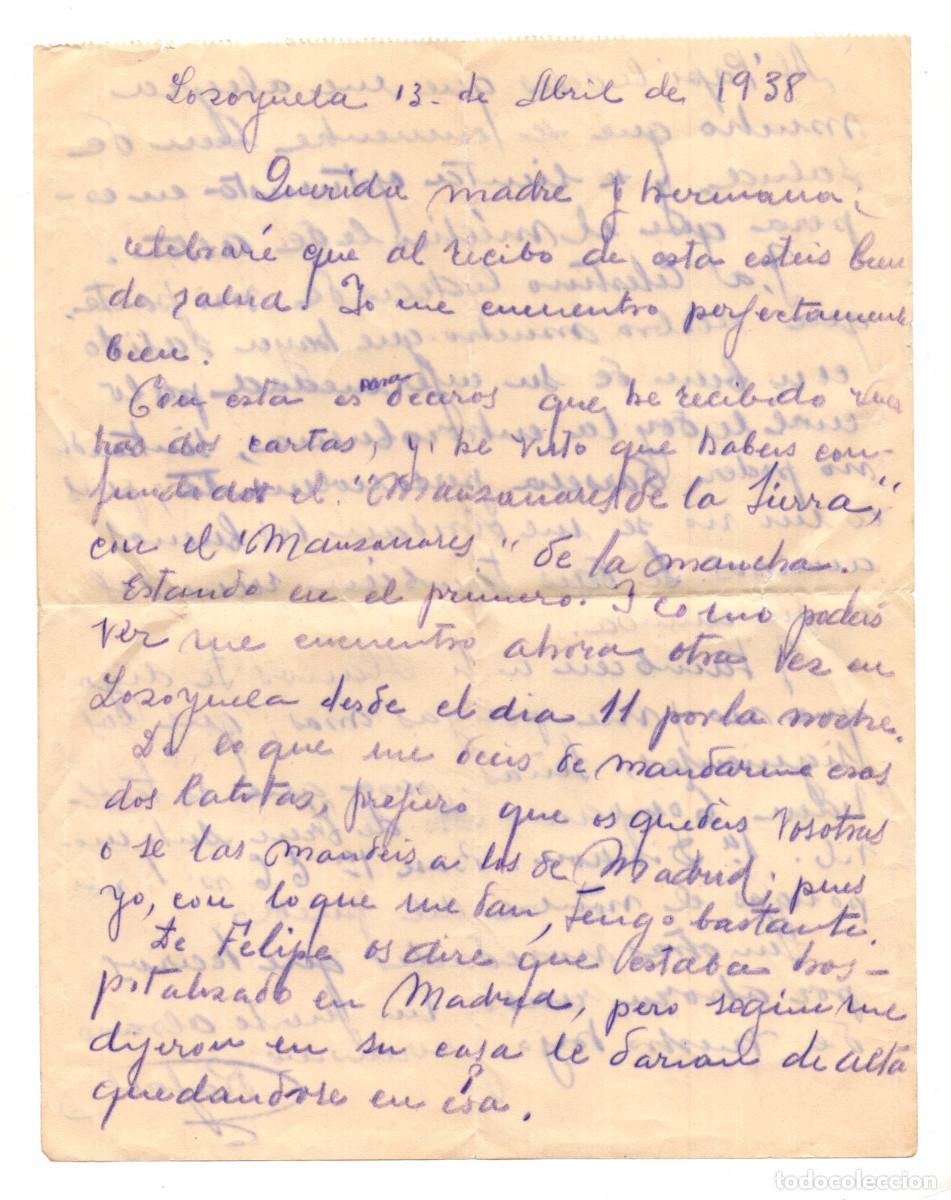 Lozoyuela 13 - de Abril de 1938
Querida madre y hermana,
celebraré que al recibo de esta esteis bien
de salud. Yo me encuentro perfectamente
bien.
Con esta es para deciros que he recibido vues
tras dos cartas, y he visto que habeis con-
fundidos el "Manzanares de la Sierra,"
con el "Manzanares" de la mancha.
Estando en el primero. Y como podeis
ver me encuentro ahora otra vez en
Lozoyuela desde el dia 11 por la noche.
De lo que me deis de mandarme esas
dos latitas, prefiero que os quedeis vosotras
o se las mandeis a los de Madrid, pues
yo, con lo que me dan, tengo bastante.
De Felipe os dire que estaba hos-
pitalizado en Madrid, pero según me
dijeron en su casa le darian de alta
quedandose en esa.
todocoleccion